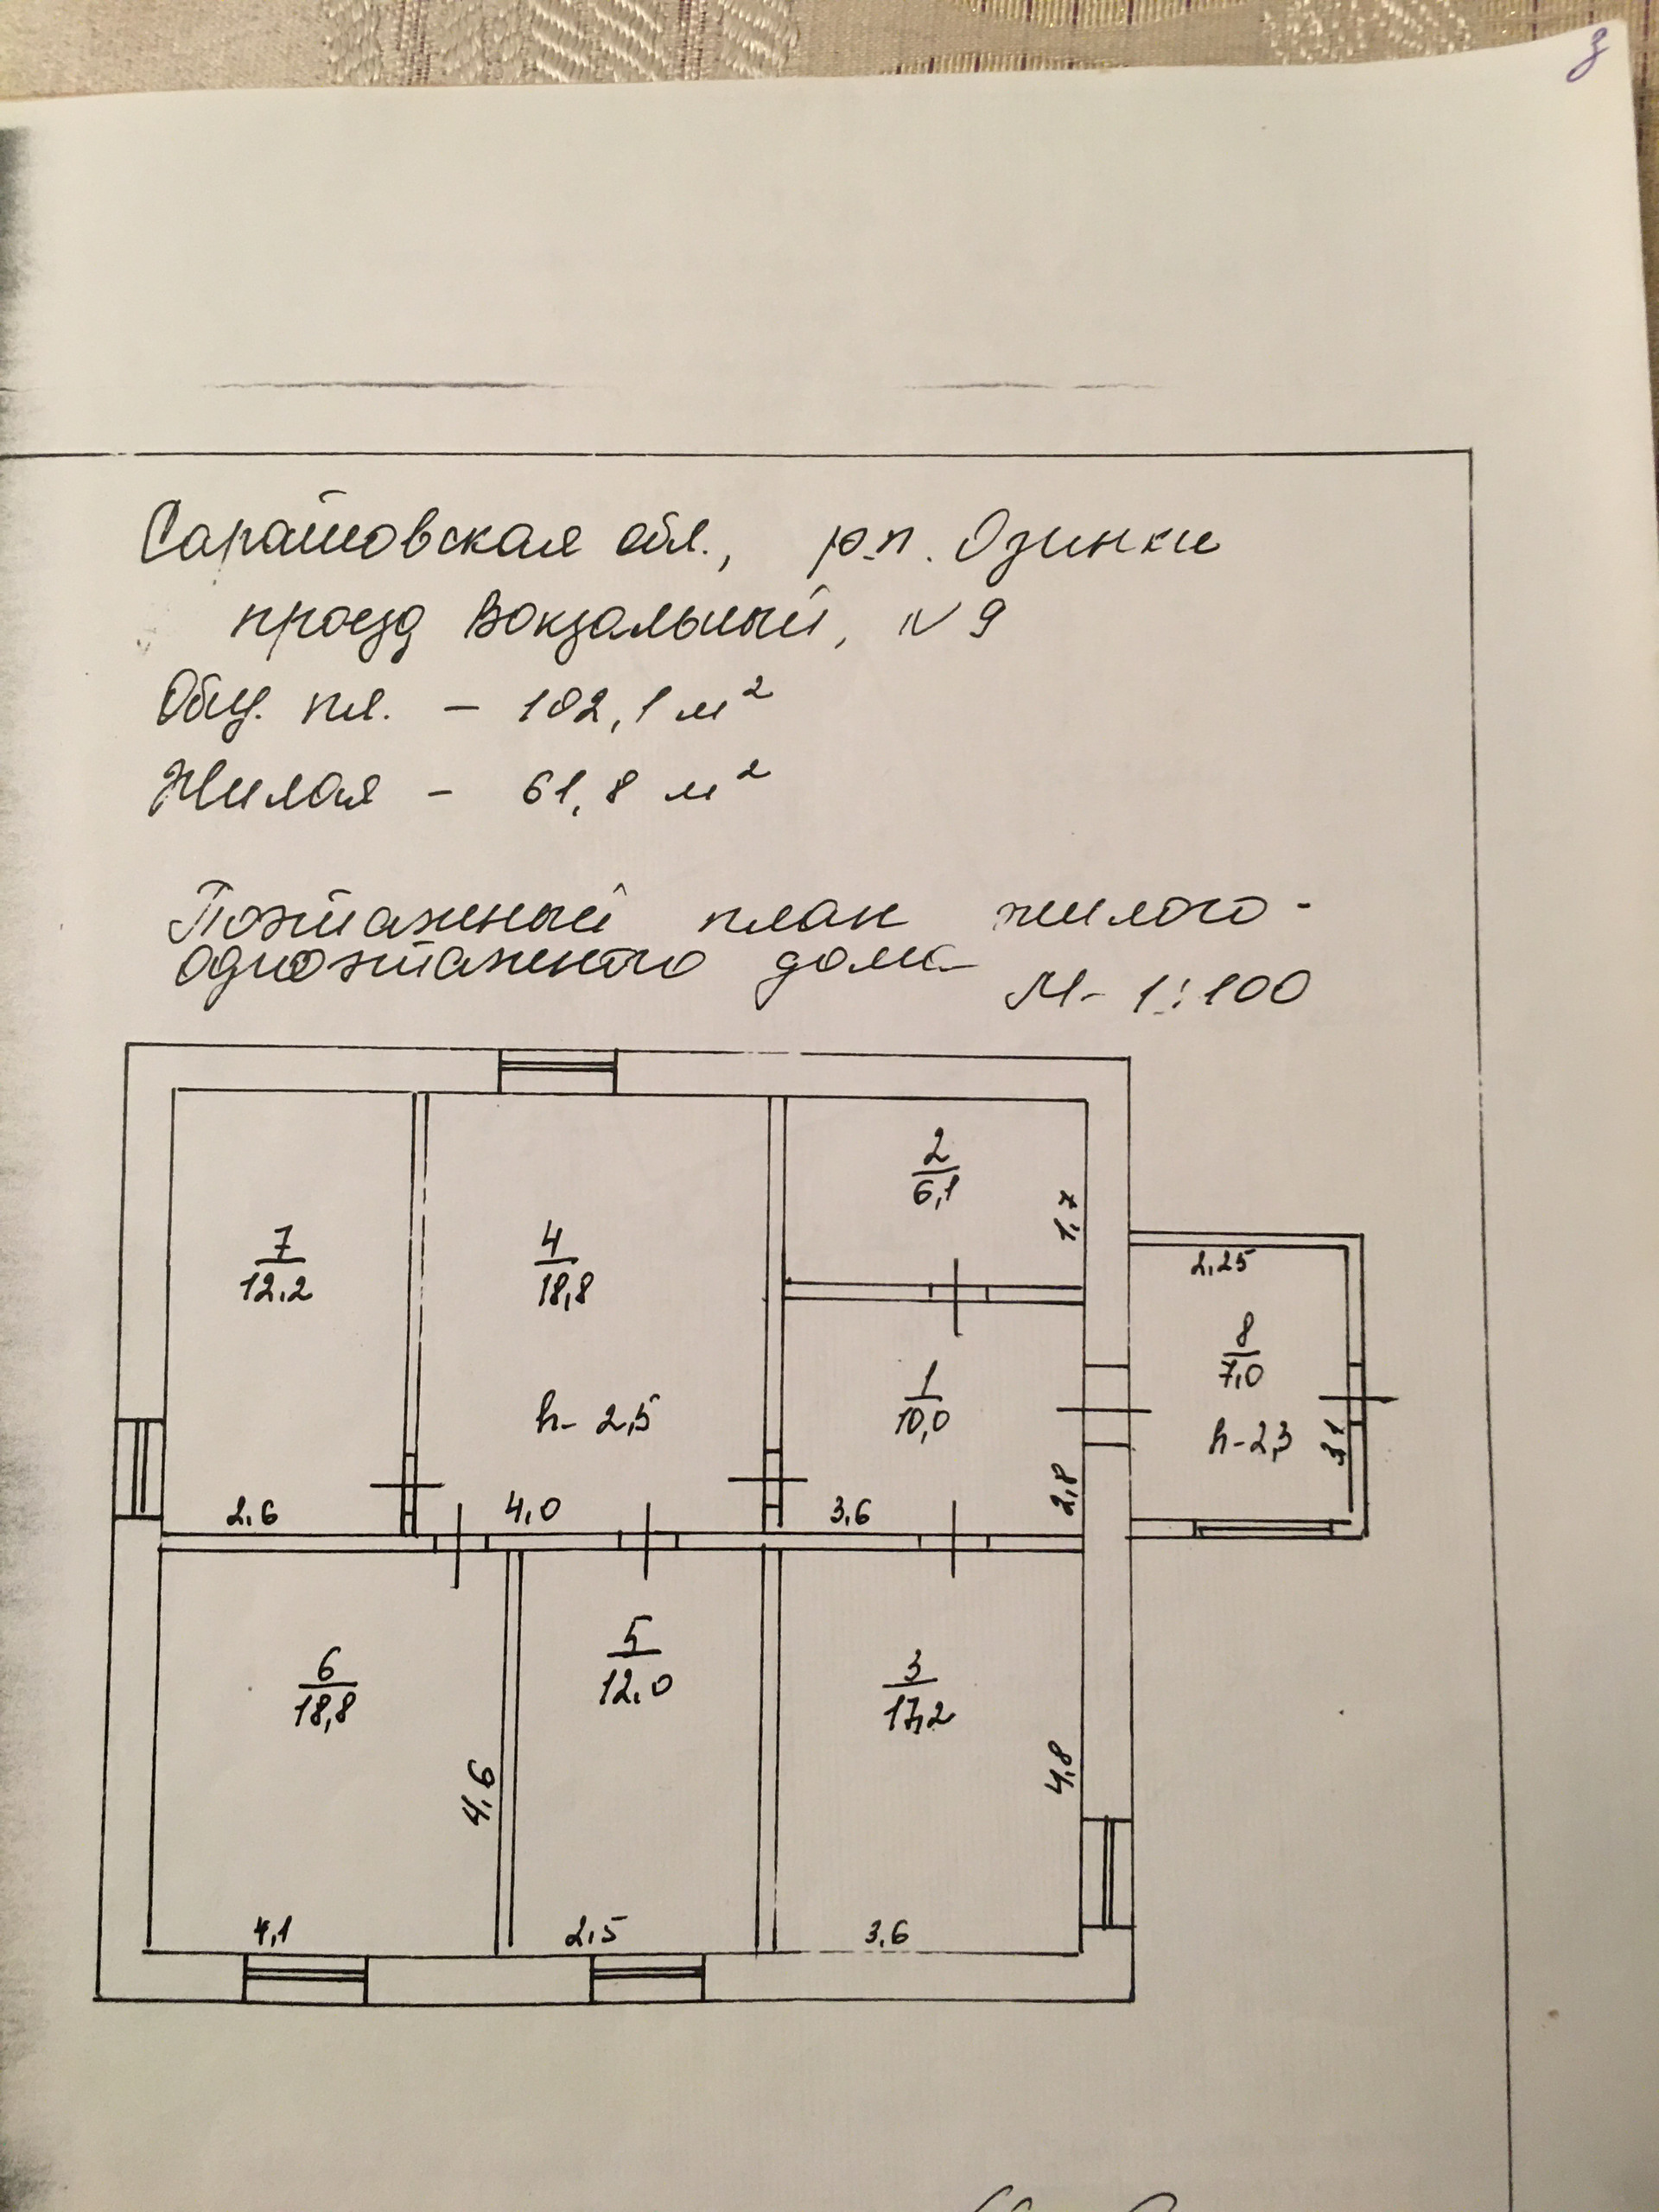 3
Саратовская обл., р.п. Озинки
проезд Вокзальный, №9
Общ. пл. – 102,1 м²
Жилая – 61,8 м²
Поэтажный план жилого
одноэтажного дома
М- 1:100
2
6,1
1,7
7
12,2
4
18,8
2,25
8
7,0
1
10,0
h- 2,5
h-2,3
3,1
2,6
4,0
3,6
2,8
6
18,8
5
12,0
3
17,2
4,6
4,8
4,1
2,5
3,6